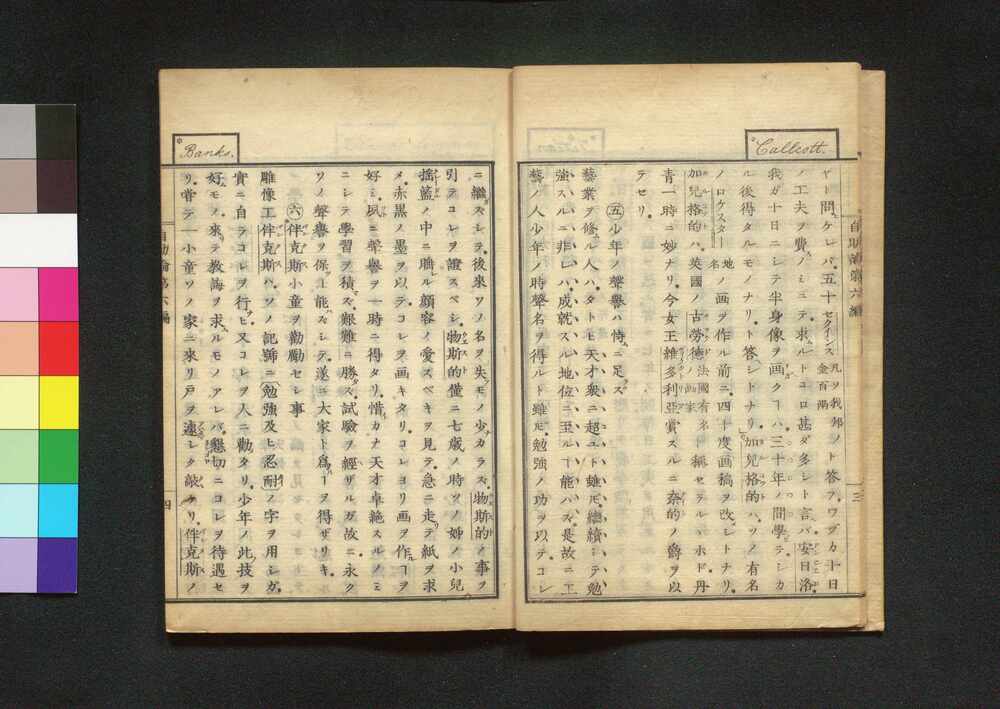 Callcott.
ヤト問ケレバ、五十セクインス 凡ソ我邦ノ金百兩 ト答フ、ワヅカ十日
ノ工夫ヲ費ノミニテ求ルトコロ甚ダ多シト言バ安日洛
我ガ十日ニシテ半身像ヲ画クヿハ三十年ノ間學テシカ
ル後得タルモノナリト答シトナリ、加兒格的ハ、ソノ有名
ノロケスター 地名 ノ画ヲ作ル前ニ四十度画稿ヲ改シトナリ、
加兒格的ハ、英國ノ古勞德 法國有名ノ画家 ト稱セラルヽホド、丹
青一時ニ妙ナリ、今女王維多利亞賞スルニ奈的ノ爵ヲ以
テセリ、
㊄少年ノ聲譽ハ恃ニ足ズ
藝業ヲ修ル人ハ、タトヒ天才衆ニ超ユト雖𪜈、繼續シテ勉
強スルニ非レバ、成就スル地位ニ至ルヿ能ハズ、是故ニ工
藝ノ人少年ノ時聲名ヲ得ルト雖𪜈、勉強ノ功ヲ以テコレ
自助論第六編
三
Banks.
ニ繼ズシテ、後來ソノ名ヲ失モノ少カラズ、物斯的ノ事ヲ
引テコレヲ證スベシ、物斯的僅ニ七歳ノ時ソノ姊ノ小兒
搖籃ノ中ニ睡ル顔容ノ愛スベキヲ見テ、急ニ走テ紙ヲ求
メ、赤黒ノ墨ヲ以テコレヲ画キタリ、コレヨリ画ヲ作ヿヲ
好ミ、夙ニ聲譽ヲ一時ニ得タリ、惜カナ天才卓絶スルノミ
ニシテ學習ヲ積ズ、艱難ニ勝ズ、試驗ヲ經ザルガ故ニ永ク
ソノ聲譽ヲ保ヿ能ズシテ、遂ニ大家ト爲ヿヲ得ザリキ、
㊅伴克斯小童ヲ勸勵セシ事
雕像工伴克斯ハ、ソノ記號ニ勉強及ヒ忍耐ノ字ヲ用シガ、
實ニ自ラコレヲ行ヒ又コレヲ人ニ勸タリ、少年ノ此技ヲ
好モノ、來テ教誨ヲ求ルモノアレバ、懇切ニコレヲ待遇セ
リ、嘗テ一小童ソノ家ニ來リ戸ヲ連シク敲ケリ、伴克斯ノ
自助論第六編
四